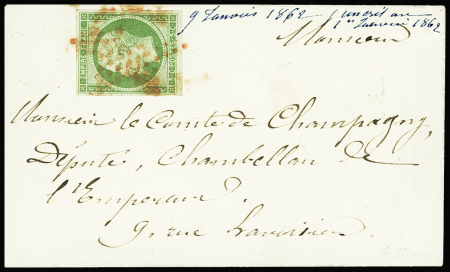 9 Janvier 1862
1er Janvier 1862
Monsieur
Monsieur le Comte de Champagny,
Député, Chambellan de
l'Empereur.
9, rue Lavoisier